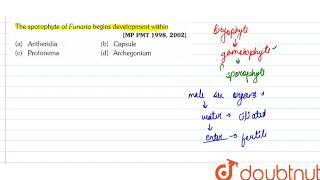 The sporophyte of Funaria begins development within
[MP PMT 1998, 2002)
(a) Antheridia (b) Capsule
(c) Protonema (d) Archegonium
Bryophyte
gametophyte
sporophyte
male sex organs
water → ciliated
enter → fertile
doubtnut